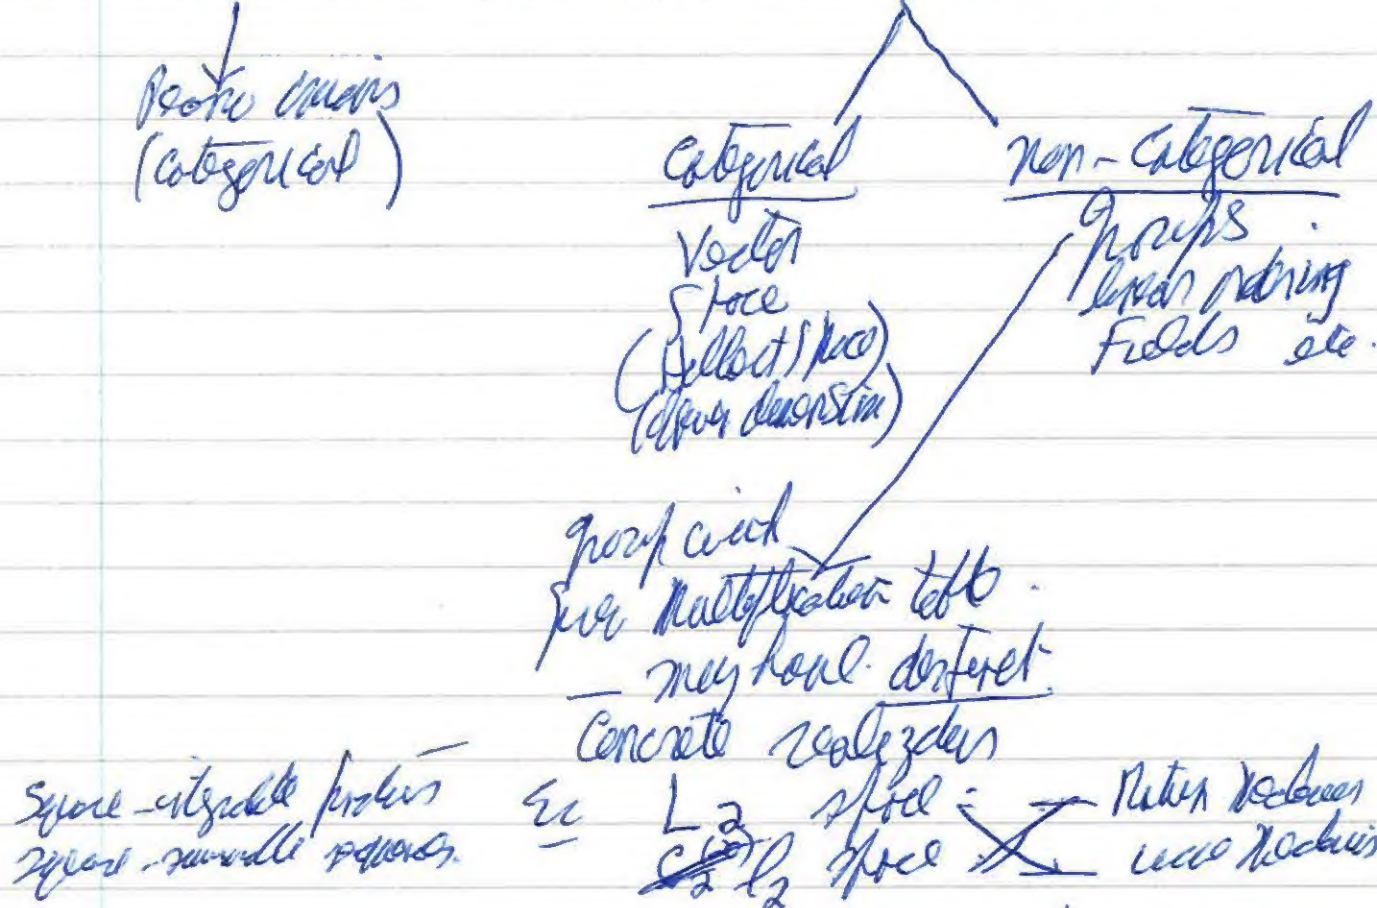 Peano axioms
(categorical)
categorical
Vector
Space
(Hilbert space)
(given dimension)
non-categorical
groups
linear ordering
Fields etc.
group with
given multiplication table.
– may have distinct
Concrete realizations
Square-integrable functions
square-summable sequences.
L2 space
l2 space
Matrix Mechanics
wave Mechanics